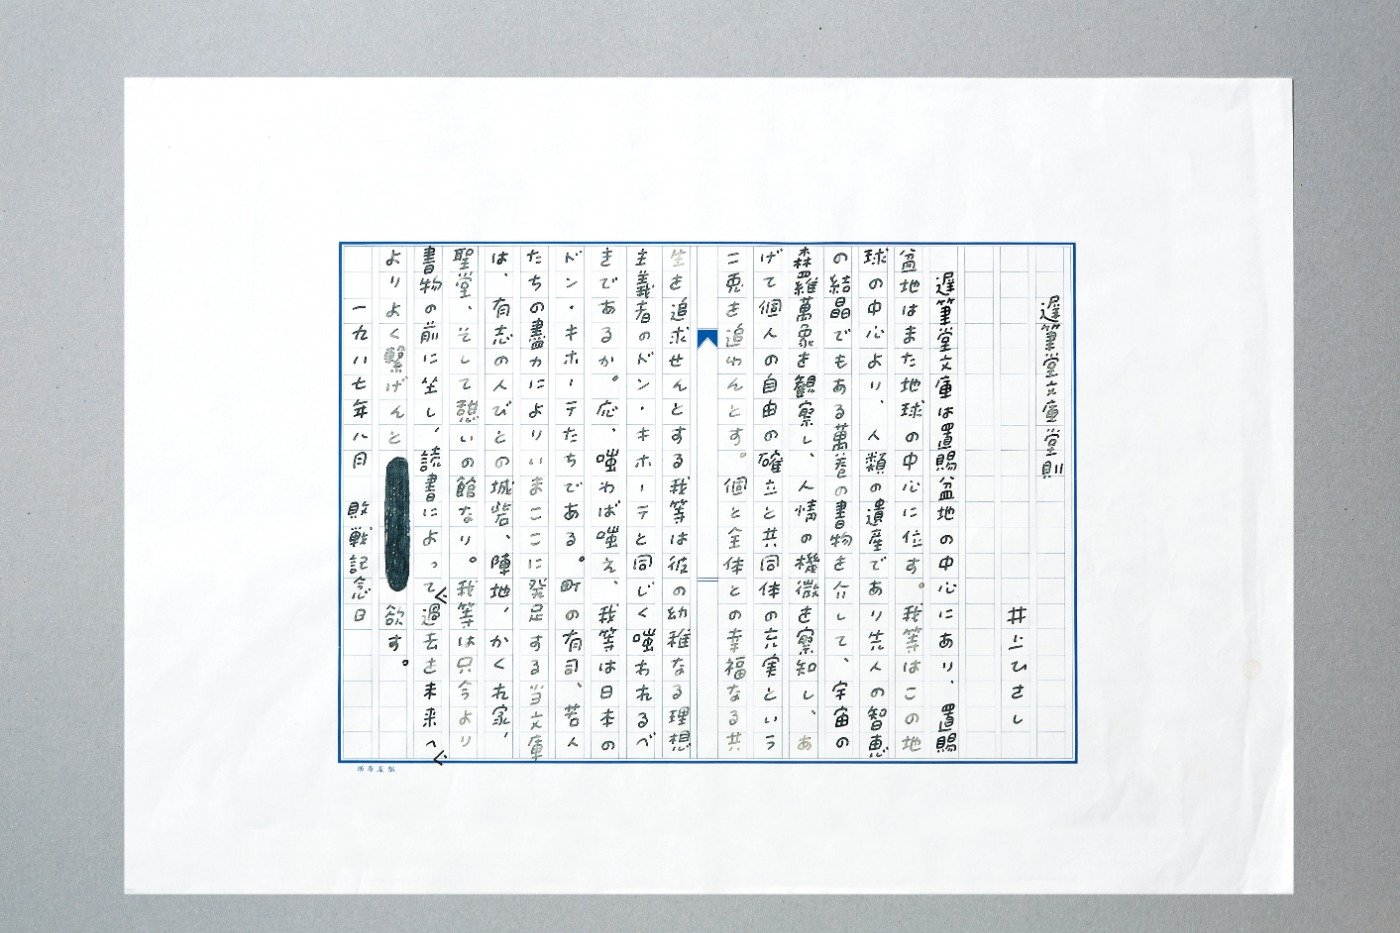 遅筆堂文庫堂則
井上ひさし
遅筆堂文庫は置賜盆地の中心にあり、置賜
盆地はまた地球の中心に位す。我等はこの地
球の中心より、人類の遺産であり先人の智恵
の結晶でもある萬巻の書物を介して、宇宙の
森羅萬象を観察し、人情の機微を察知し、あ
げて個人の自由の確立と共同体の充実という
二兎を追わんとす。個と全体との幸福なる共
生を追求せんとする我等は彼の幼稚なる理想
主義者のドン・キホーテと同じく嗤われるべ
きであるか。応、嗤わば嗤え、我等は日本の
ドン・キホーテたちである。町の有司、若人
たちの盡力によりいまここに発足する当文庫
は、有志の人びとの城砦、陣地、かくれ家、
聖堂、そして憩いの館なり。我等は只今より
書物の前に坐し、読書によって過去を未来へ
よりよく繋げんと欲す。
一九八七年八月 敗戦記念日